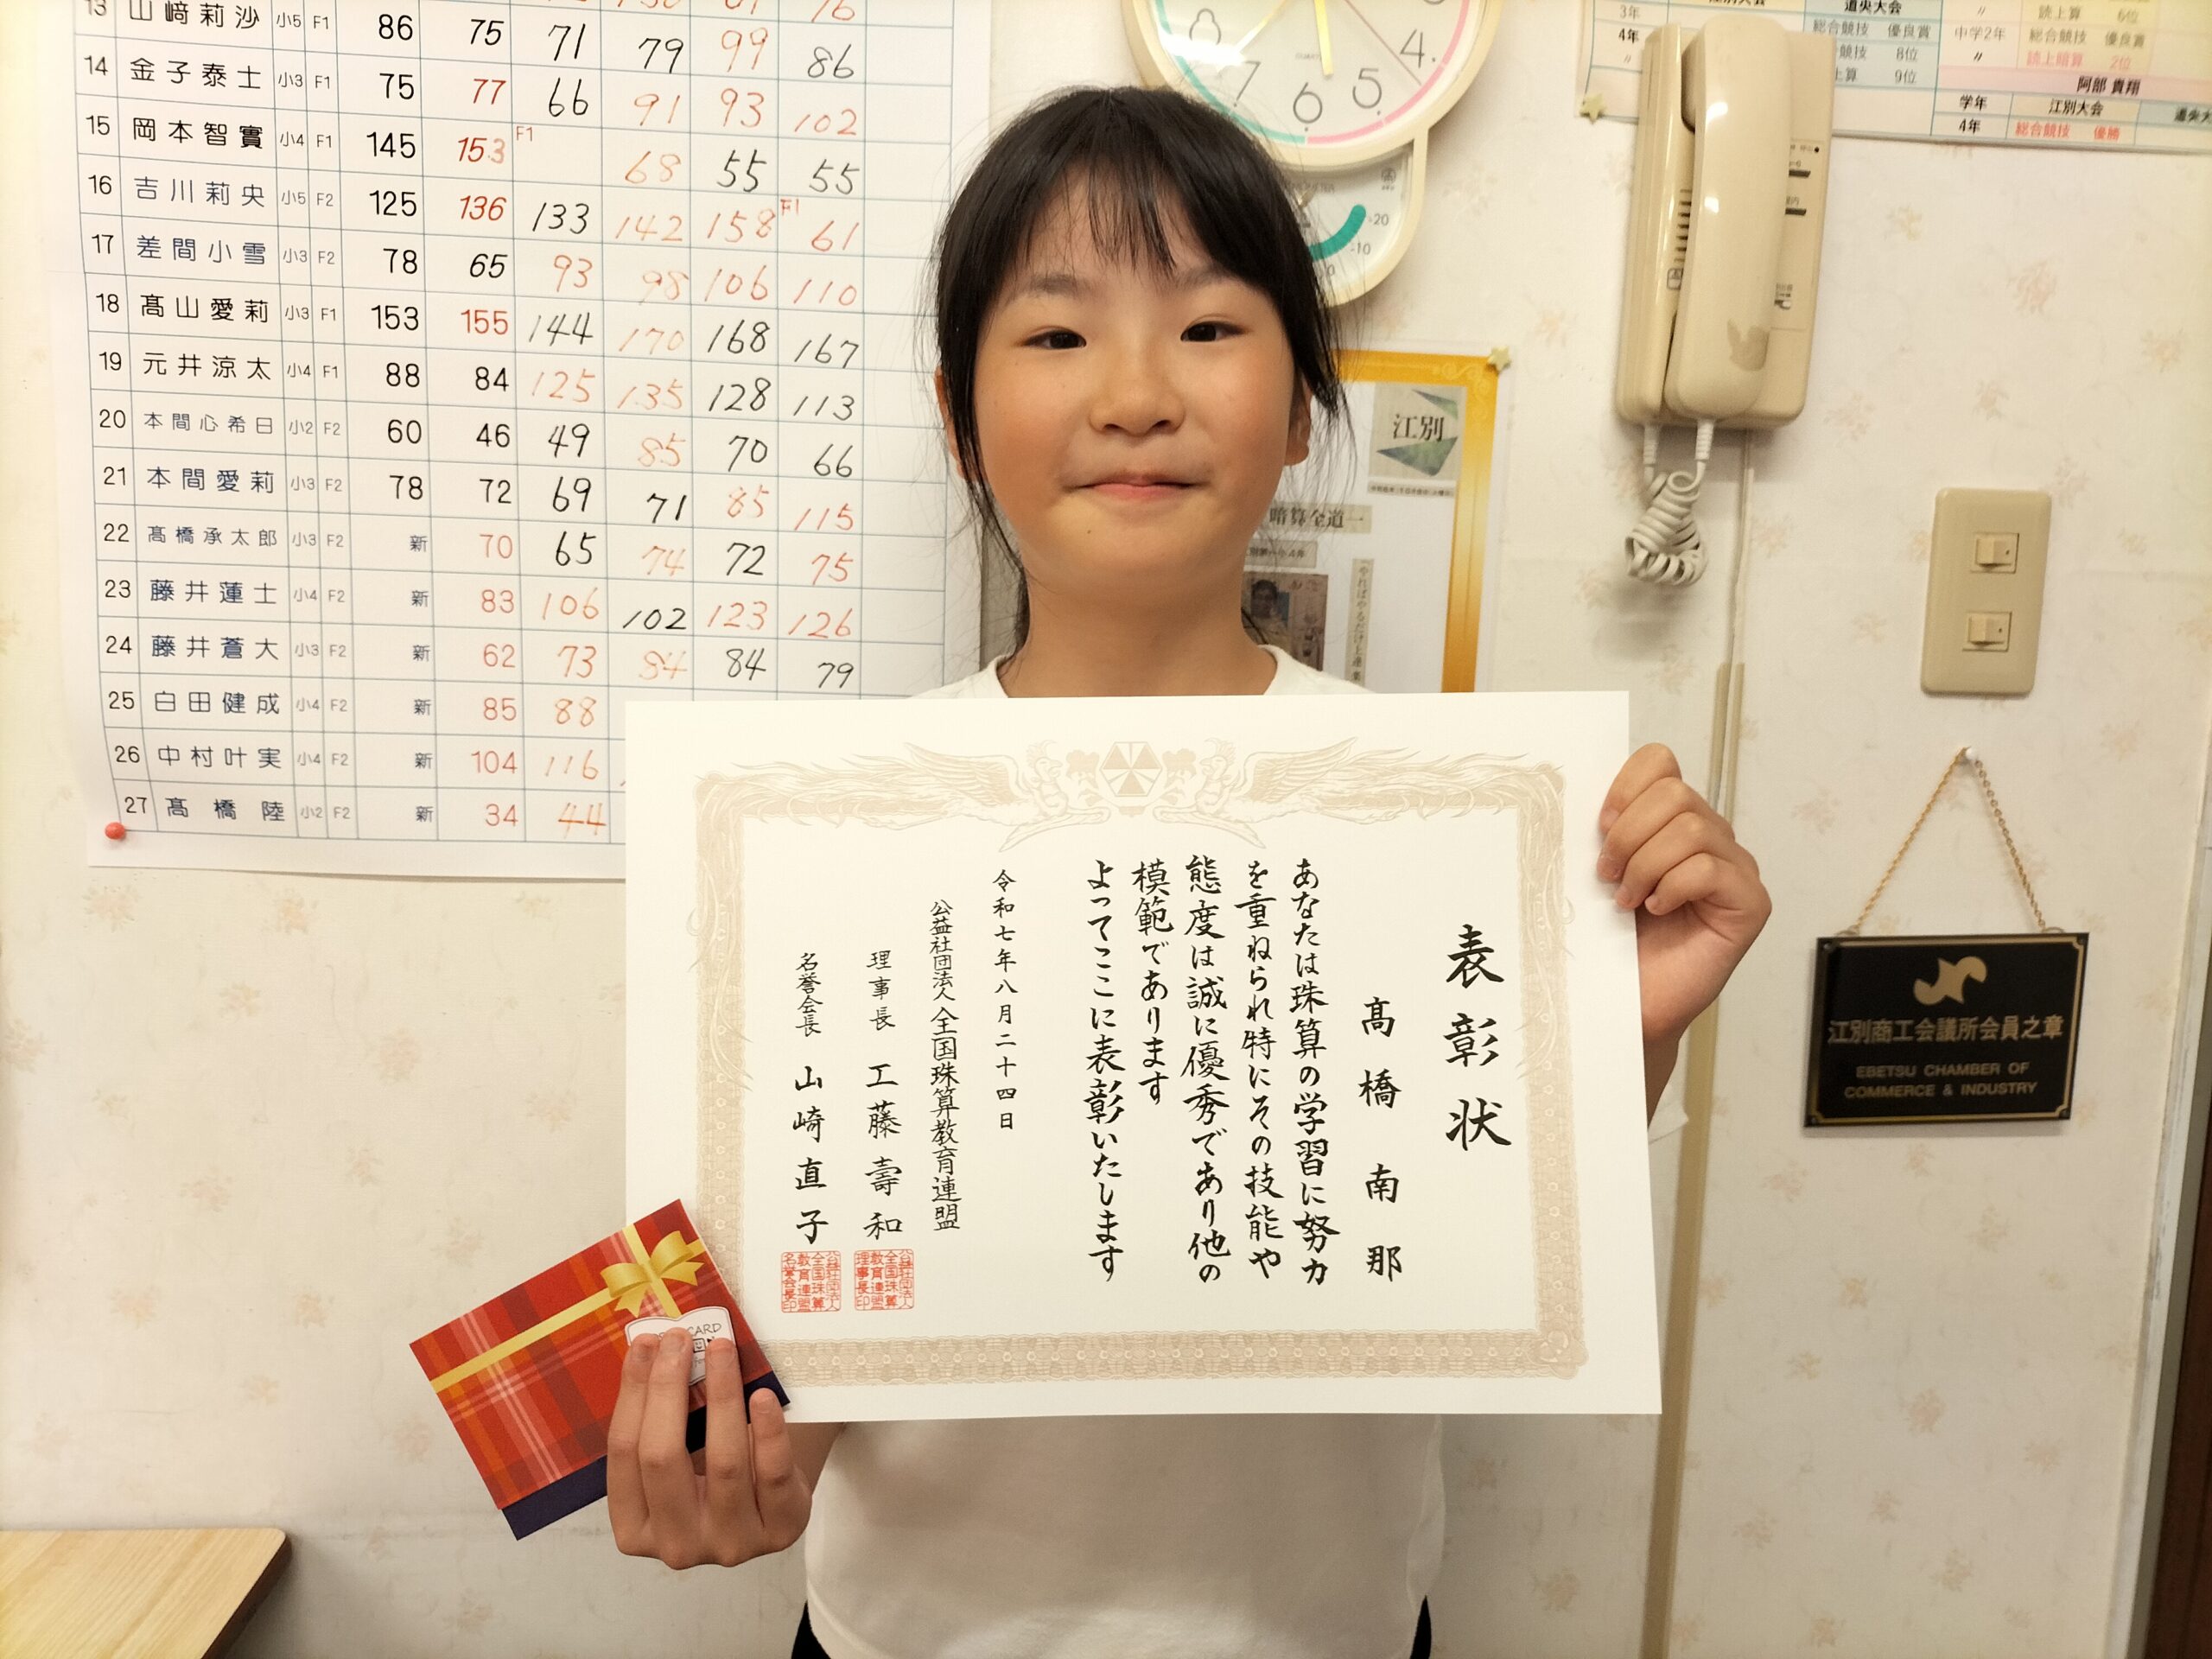 13 山﨑莉沙 小5 F1 86 75 71 79 99 86
14 金子泰士 小3 F1 75 77 66 91 93 102
15 岡本智實 小4 F1 145 153 F1 68 55 55
16 吉川莉央 小5 F2 125 136 133 142 158 F1 61
17 差間小雪 小3 F2 78 65 93 98 106 110
18 髙山愛莉 小3 F1 153 155 144 170 168 167
19 元井涼太 小4 F1 88 84 125 135 128 113
20 本間心希日 小2 F2 60 46 49 85 70 66
21 本間愛莉 小3 F2 78 72 69 71 85 115
22 髙橋承太郎 小3 F2 新 70 65 74 72 75
23 藤井蓮士 小4 F2 新 83 106 102 123 126
24 藤井蒼大 小3 F2 新 62 73 84 84 79
25 白田健成 小4 F2 新 85 88
26 中村叶実 小4 F2 新 104 116
27 髙橋陸 小2 F2 新 34 44
8 7 6 5 4
-20
-10
0
道央大会
3年 〃 読上算 6位
4年 総合競技 優良賞 中学2年 総合競技 優良賞
〃 競技 8位 〃 読上暗算 2位
上算 9位
阿部 貴翔
学年 江別大会 道央大
4年 総合競技 優勝
江別
暗算全道一
表彰状
髙橋 南那
あなたは珠算の学習に努力
を重ねられ特にその技能や
態度は誠に優秀であり他の
模範であります
よってここに表彰いたします
令和七年八月二十四日
公益社団法人全国珠算教育連盟
理事長 工藤壽和
名誉会長 山崎直子
公益社団法人
全国珠算
教育連盟
理事長印
公益社団法人
全国珠算
教育連盟
名誉会長印
CARD
江別商工会議所会員之章
EBETSU CHAMBER OF
COMMERCE & INDUSTRY